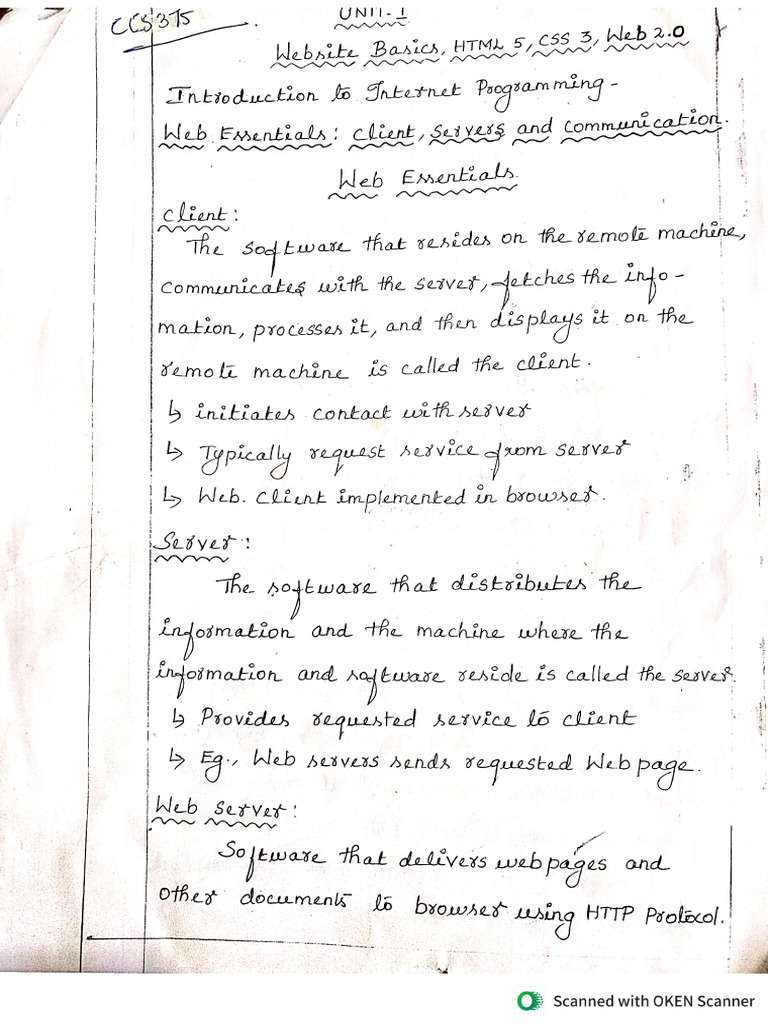 CCS375
UNIT-1
Website Basics, HTML 5, CSS 3, Web 2.0
Introduction to Internet Programming -
Web Essentials: Client, Servers and Communication.
Web Essentials.
Client:
The software that resides on the remote machine,
communicates with the server, fetches the info-
mation, processes it, and then displays it on the
remote machine is called the client.
↳ initiates contact with server
↳ Typically request service from server
↳ Web. Client implemented in browser.
Server:
The software that distributes the
information and the machine where the
information and software reside is called the server.
↳ Provides requested service to client
↳ Eg., Web servers sends requested Web page.
Web Server:
Software that delivers web pages and
other documents to browser using HTTP Protocol.
Scanned with OKEN Scanner